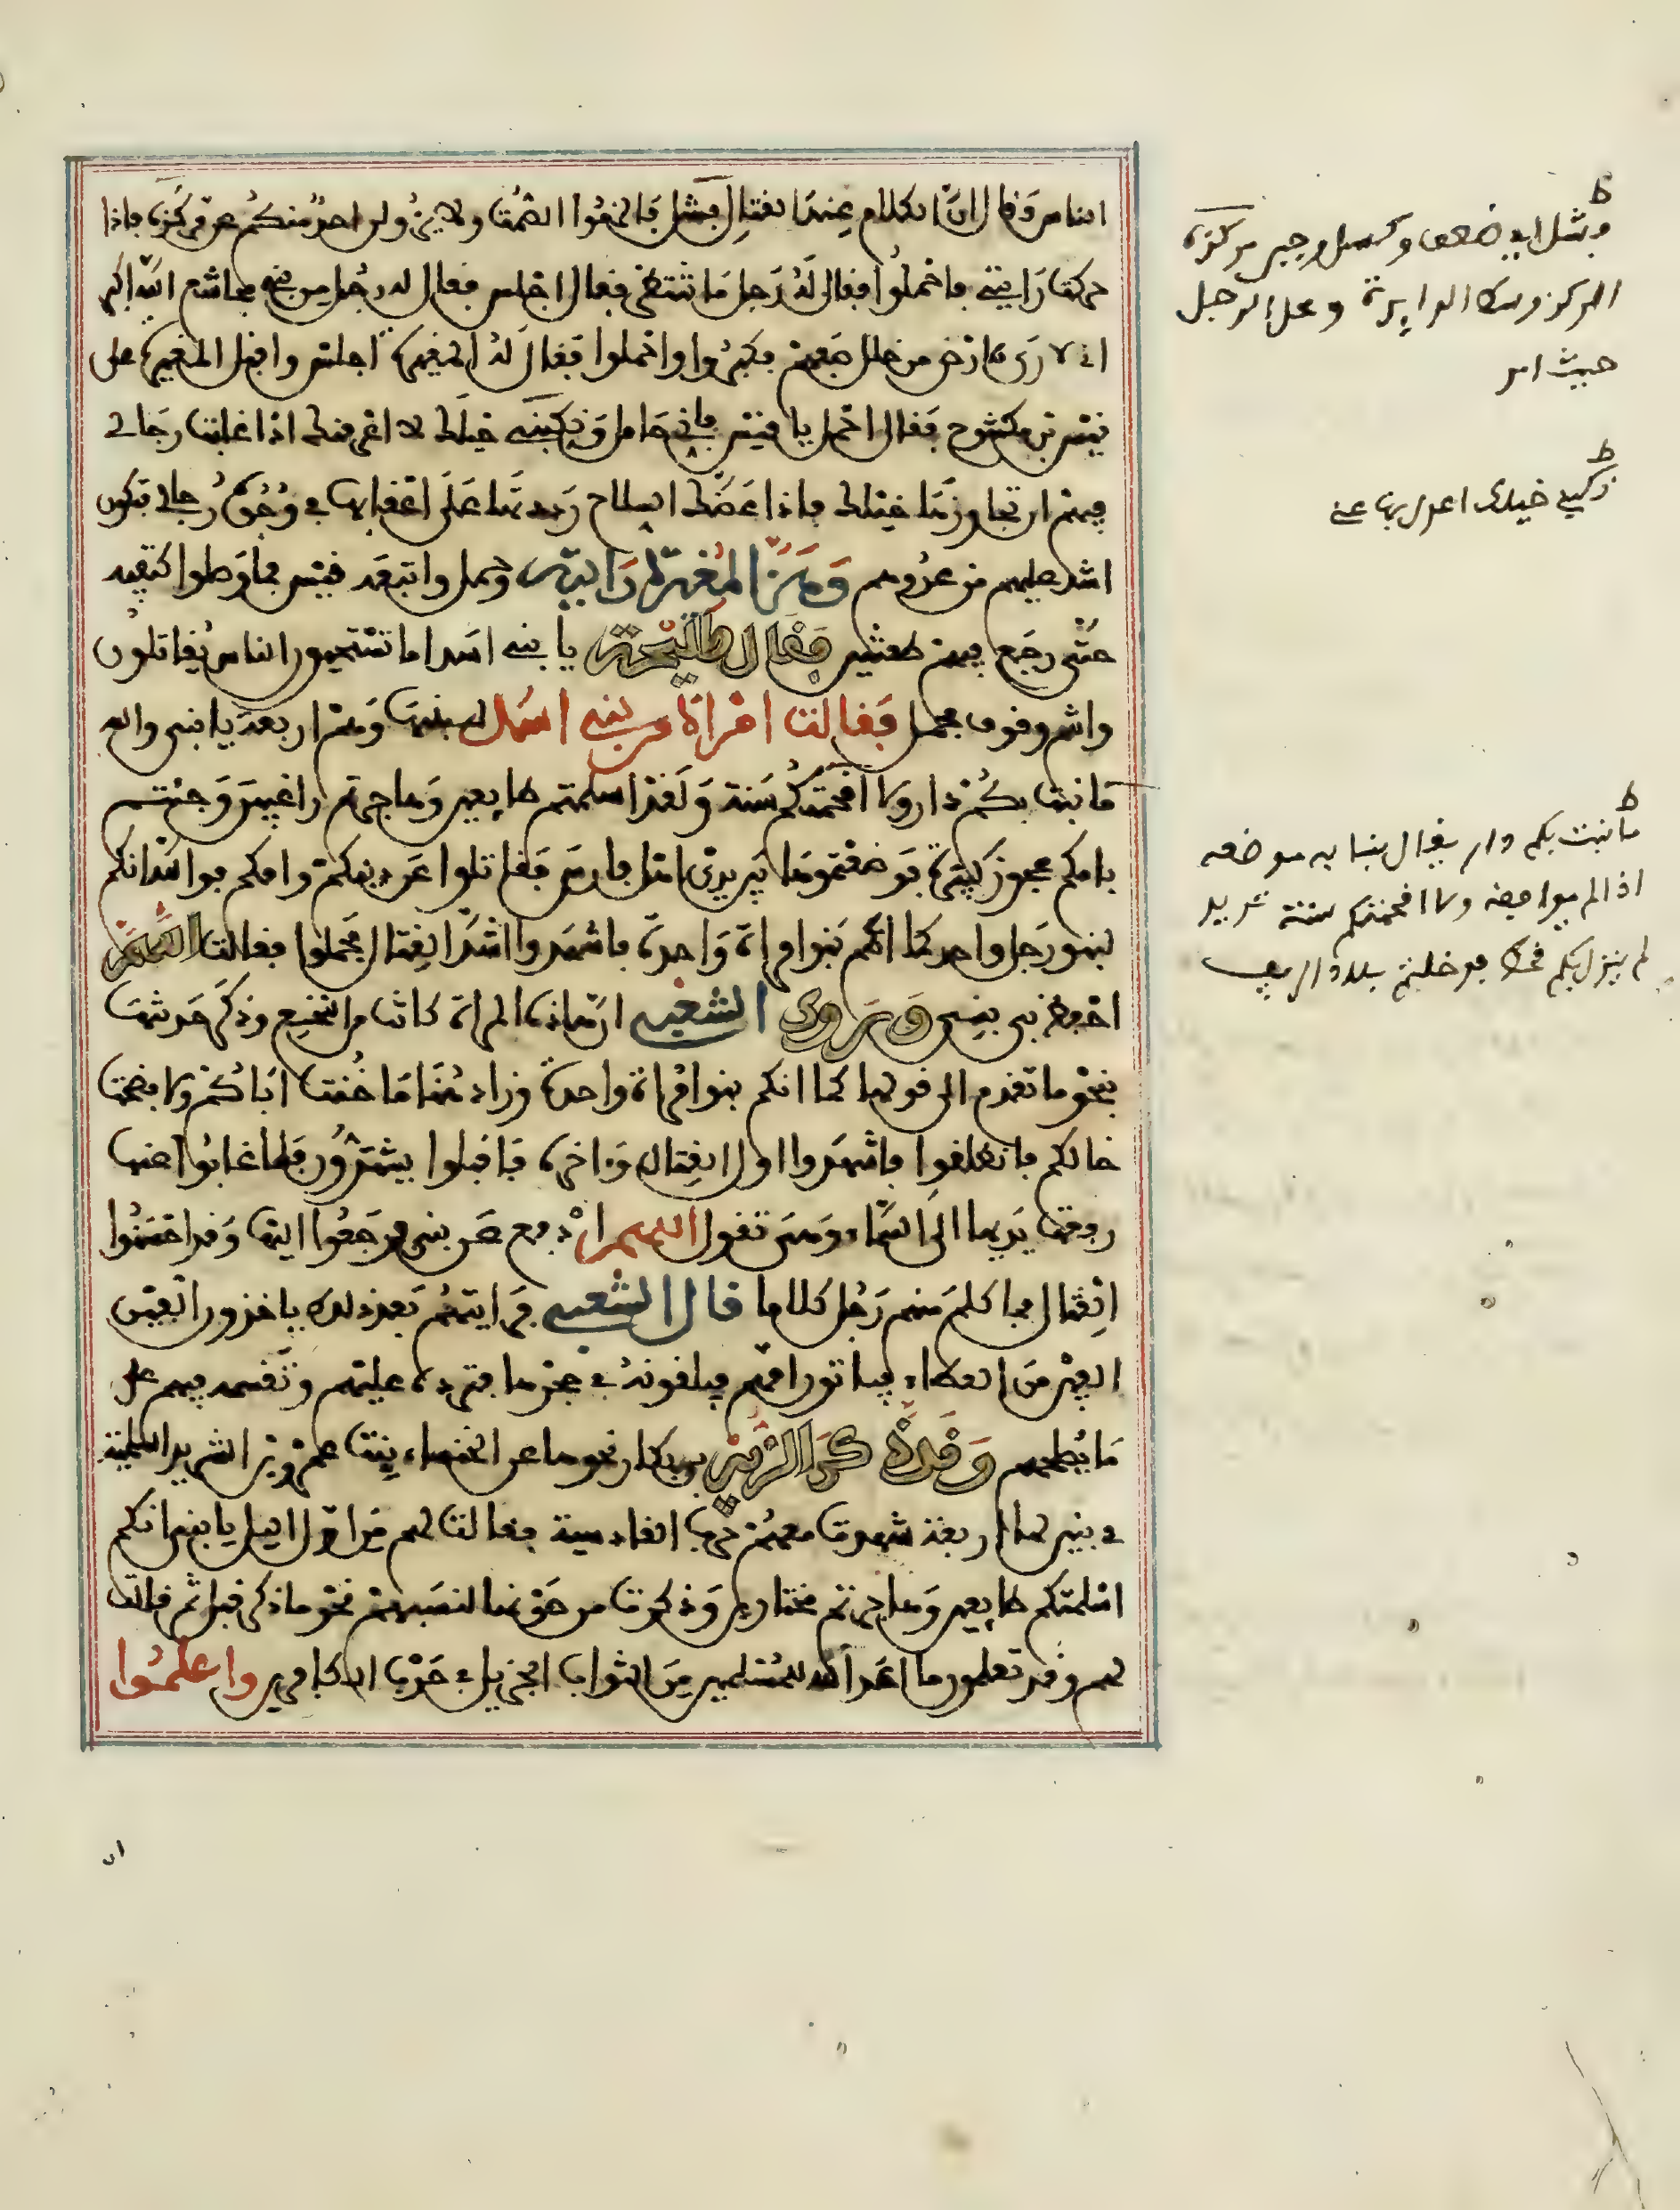 الناس وقال ان الكلام عند القتال فشل فالزموا الصمت ولا يزولن احد منكم عن مركزه فاذا
حركت رايتي فاحملوا فقال له رجل ما تنتظر فقال اجلس فقال له رجل من بني مجاشع الله اكبر
اني لارى الارض من خلل صفهم فكبروا واحملوا فقال له المغيرة اجلس واقبل المغيرة على
قيس بن مكشوح فقال احمل يا قيس فاني حامل ونكبني خيلك لا اعرفنك اذا غابت رجالي
فيهم ان تجاوزنا خيلك فاذا عضك السلاح رددتها على اعقابها في وجوه رجالي فتكون
اشد عليهم من عدوهم وهز المغيرة رايته وحمل واتبعه قيس فما وصلوا كتيبة
حتى رجع فيهم طعنتين فقال طليحة يا بني اسد اما تستحيون الناس يقاتلون
وانتم وقوف فحمل فقالت امراة من بني اسد لبنيها وهم اربعة يا بني والله
ما نبت بكم دار ولا اقحمتكم سنة ولقد اسلمتم طايعين وهاجرتم راغبين وجئتم
بامكم عجوز كبيرة فوضعتموها بين يدي اهل فارس فقاتلوا عن دينكم وامكم فوالله انكم
لبنو رجل واحد كما انكم بنو امراة واحدة فاشهدوا اشد القتال فحملوا فقالت اللهم
احفظ في بني وروى الشعبي ان هذه المراة كانت من النخع وذكر حديثها
بنحو ما تقدم الى قولها كما انكم بنو امراة واحدة وزاد هنا ما خنت اباكم ولا فضحت
خالكم فانطلقوا فاشهدوا اول القتال واخره فاقبلوا يشتدون فلما غابوا عنها
رفعت يديها الى السماء وهي تقول اللهم ادفع عن بني فرجعوا اليها وقد احسنوا
القتال فما كلم منهم رجل كلاما قال الشعبي فرايتهم بعد ذلك ياخذون الفين
الفين من العطاء فياتون امهم فيلقونه في حجرها فترده عليهم وتقسمه فيهم على
ما يصلحهم وقد ذكر الزبير بن بكار نحوها عن الخنساء بنت عمرو بن الشريد السلمية
في بنين لها اربعة شهدت معهم حرب القادسية فقالت لهم من اول الليل يا بني انكم
اسلمتم طايعين وهاجرتم مختارين وذكرت من صونها لنسبهم نحو ما ذكر قبل ثم قالت
لهم وقد تعلمون ما اعد الله للمسلمين من الثواب الجزيل في حرب الكافرين واعلموا
ط
فشل اي ضعف وكسل وجبن مركزه
المركز وسط الدايرة ومحل الرجل
حيث امر
ط
نكبني خيلك اعدل بها عني
ط
ما نبت بكم دار يقال نبا به موضعه
اذا لم يوافقه ولا اقحمتكم سنة تريد
لم ينزل بكم قحط فدخلتم بلاد الريف